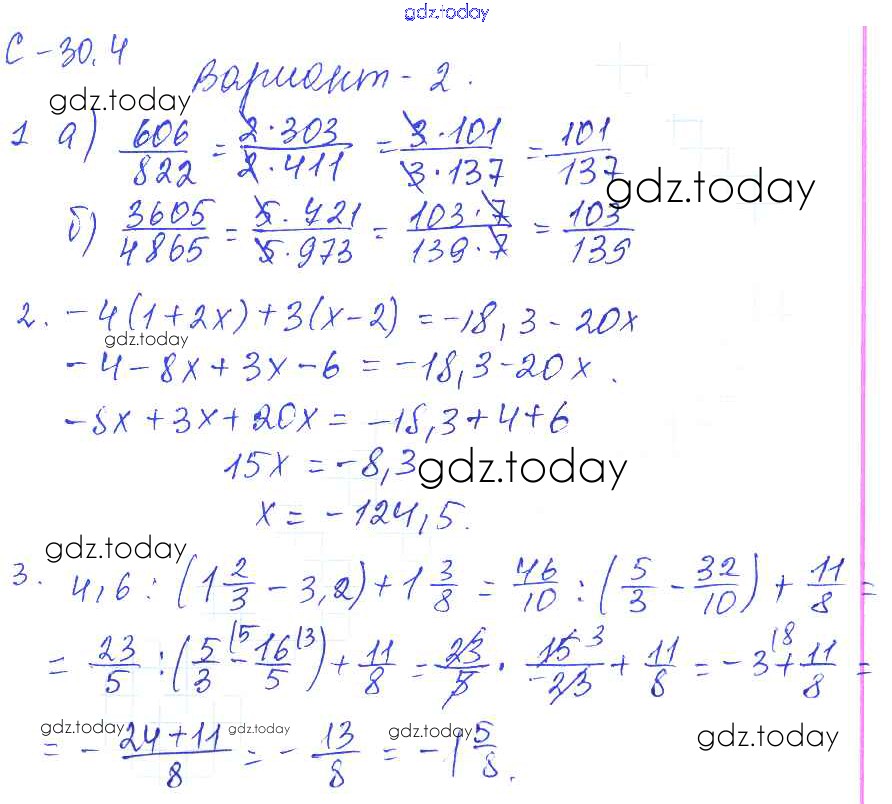 gdz.today
С-30.4
Вариант-2.
gdz.today
1 а) 606/822 = 2·303/2·411 = 3·101/3·137 = 101/137
gdz.today
б) 3605/4865 = 5·721/5·973 = 103·7/139·7 = 103/139
2. -4(1+2x)+3(x-2) = -18,3-20x
gdz.today
-4-8x+3x-6 = -18,3-20x.
-8x+3x+20x = -18,3+4+6
15x = -8,3
gdz.today
x = -124,5.
gdz.today
3. 4,6:(1 2/3 - 3,2)+1 3/8 = 46/10 : (5/3 - 32/10) + 11/8 =
= 23/5 : (5/3 (5 - 16/5 (3) + 11/8 = 23/5 · 15 3/-23 + 11/8 = -3 (8 + 11/8 =
gdz.today gdz.today gdz.today gdz.today
= - 24+11/8 = - 13/8 = -1 5/8.